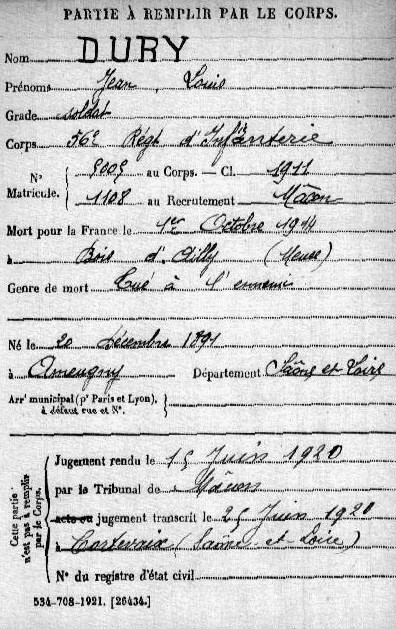 PARTIE À REMPLIR PAR LE CORPS.
Nom DURY
Prénoms Jean Louis
Grade soldat
Corps 56e Régt d'Infanterie
N° Matricule. 5009 au Corps. — Cl. 1911
1108 au Recrutement Mâcon
Mort pour la France le 1er Octobre 1914
à Bois d'Ailly (Meuse)
Genre de mort Tué à l'ennemi
Né le 20 Décembre 1891
à Ameugny Département Saône et Loire
Arrt municipal (pr Paris et Lyon), à défaut rue et N°.
Cette partie n'est pas à remplir par le Corps.
Jugement rendu le 15 Juin 1920
par le Tribunal de Mâcon
acte ou jugement transcrit le 25 Juin 1920
à Cortevaix (Saône et Loire)
N° du registre d'état civil
534-708-1921. [26434.]